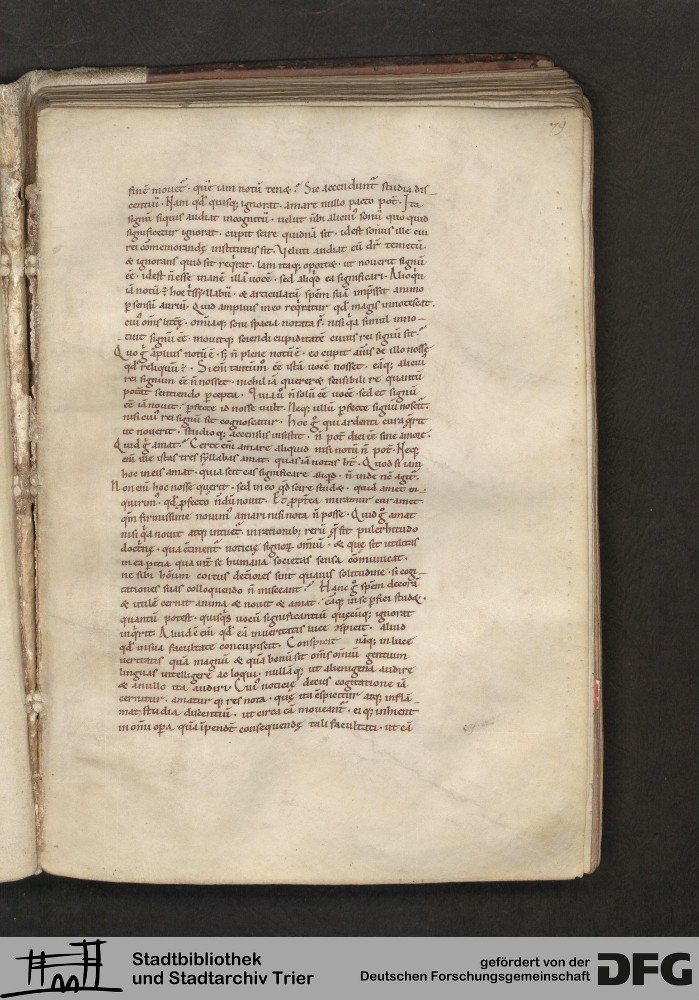 79
finē mouet̄ · quē iam notū tenet? Sic accendunt̄ studia dis-
centiū. Nam qd̄ quisq; ignorat · amare nullo pacto pot̄. Ita
signū siquis audiat incognitū · uelut ūbi alicui' sonū quo quid
significetur ignorat · cupit scire quidnā sit · idest sonus ille cui
rei cōmemorandę institutus sit. Veluti audiat cū dr̄ temetū
& ignorans quid sit req̄rat. Iam itaq; oport& · ut nouerit signū
ēē · idest n̄ esse inanē illā uocē · sed aliq̇d ea significari. Alioq̇n
iā notū ē hoc trisyllabū · & articulatā spēm suā imp̄ssit animo
p sensū auriū. Quid amplius in eo req̄ratur qd̄ magis innotescat ·
cui' om̄s littęę · omiāq; soni spacia notata s̄ · nisi q̇a simul inno-
tuit signū ēē · mouitq; sciendi cupiditatē cuius rei signū sit?
Quo ḡ āplius notū ē · s; n̄ plene notū ē · eo cupit anim' de illo nosse
qd̄ reliquū ē. Si eni tantūm ēē istā uocē nosset · eāq; alicui'
rei signum ēē n̄ nosset · nichil iā quereret sensibili re quantū
poterat sentiendo pcepta. Quia u° n̄ solū ēē uocē · sed et signū
ēē iā nouit · pfecte id nosse uult. Neq; ullū pfecte signū noscit̄ ·
nisi cui' rei signū sit cognoscatur. Hoc ḡ qui ardenti cura q̄rit
ut nouerit · studioq; accensus insistit · n̄ pot̄ dici ēē sine amore.
Quid ḡ amat? Certe eni amare aliquid nisi notū n̄ pot̄. Neq;
eni ille istas tres syllabas amat · quas iā notas ht̄. Quod si iam
hoc in eis amat · quia scit eas significare aliqd̄ · n̄ inde nc̄ agit̄ ·
Non eni hoc nosse querit · sed in eo qd̄ scire stud& · quid amet in-
quirim' · qd̄ pfecto n̄dū nouit. Et pp̄terea miramur cur amet ·
qm̄ firmissime nouim' amari nisi nota n̄ posse. Quid ḡ amat
nisi q̇a nouit atq; intuet̄ in rationib; rerū q̄ sit pulchritudo
doctrinę · qua ctinent̄ noticię signoꝝ omniū · & que sit utilitas
in ea peritia qua int̄ se humana societas sensa cōmunicat ·
ne sibi hōnum coetus deteriores sint quauis solitudine · si cogi-
tationes suas colloquendo n̄ misceant? Hanc ḡ spēm decorā
& utilē cernit anima & nouit & amat. Eāq; in se pfici stud& ·
quantū potest · quisq̇s uocū significantiū quęcūq; ignorat
inq̇rit. Aliud ē eni qd̄ eā in ueritatis luce cspicit · aliud
qd̄ in sua facultate concupiscit. Conspicit naq; in luce
ueritatis quā magnū & quā bonū sit om̄s omniū gentium
linguas intelligere ac loqui · nullāq; ut alienigena audire
& a nullo ita audiri. Cui' noticię decus cogitatione iā
cernitur · amatur q; res nota · quę ita cspicitur atq; inflā-
mat studia discentiū · ut circa eā moueant̄ · ei q; inhient
in omi opa quā inpendt̄ consequendę tali facultati · ut eā
Stadtbibliothek
und Stadtarchiv Trier
gefördert von der
Deutschen Forschungsgemeinschaft
DFG